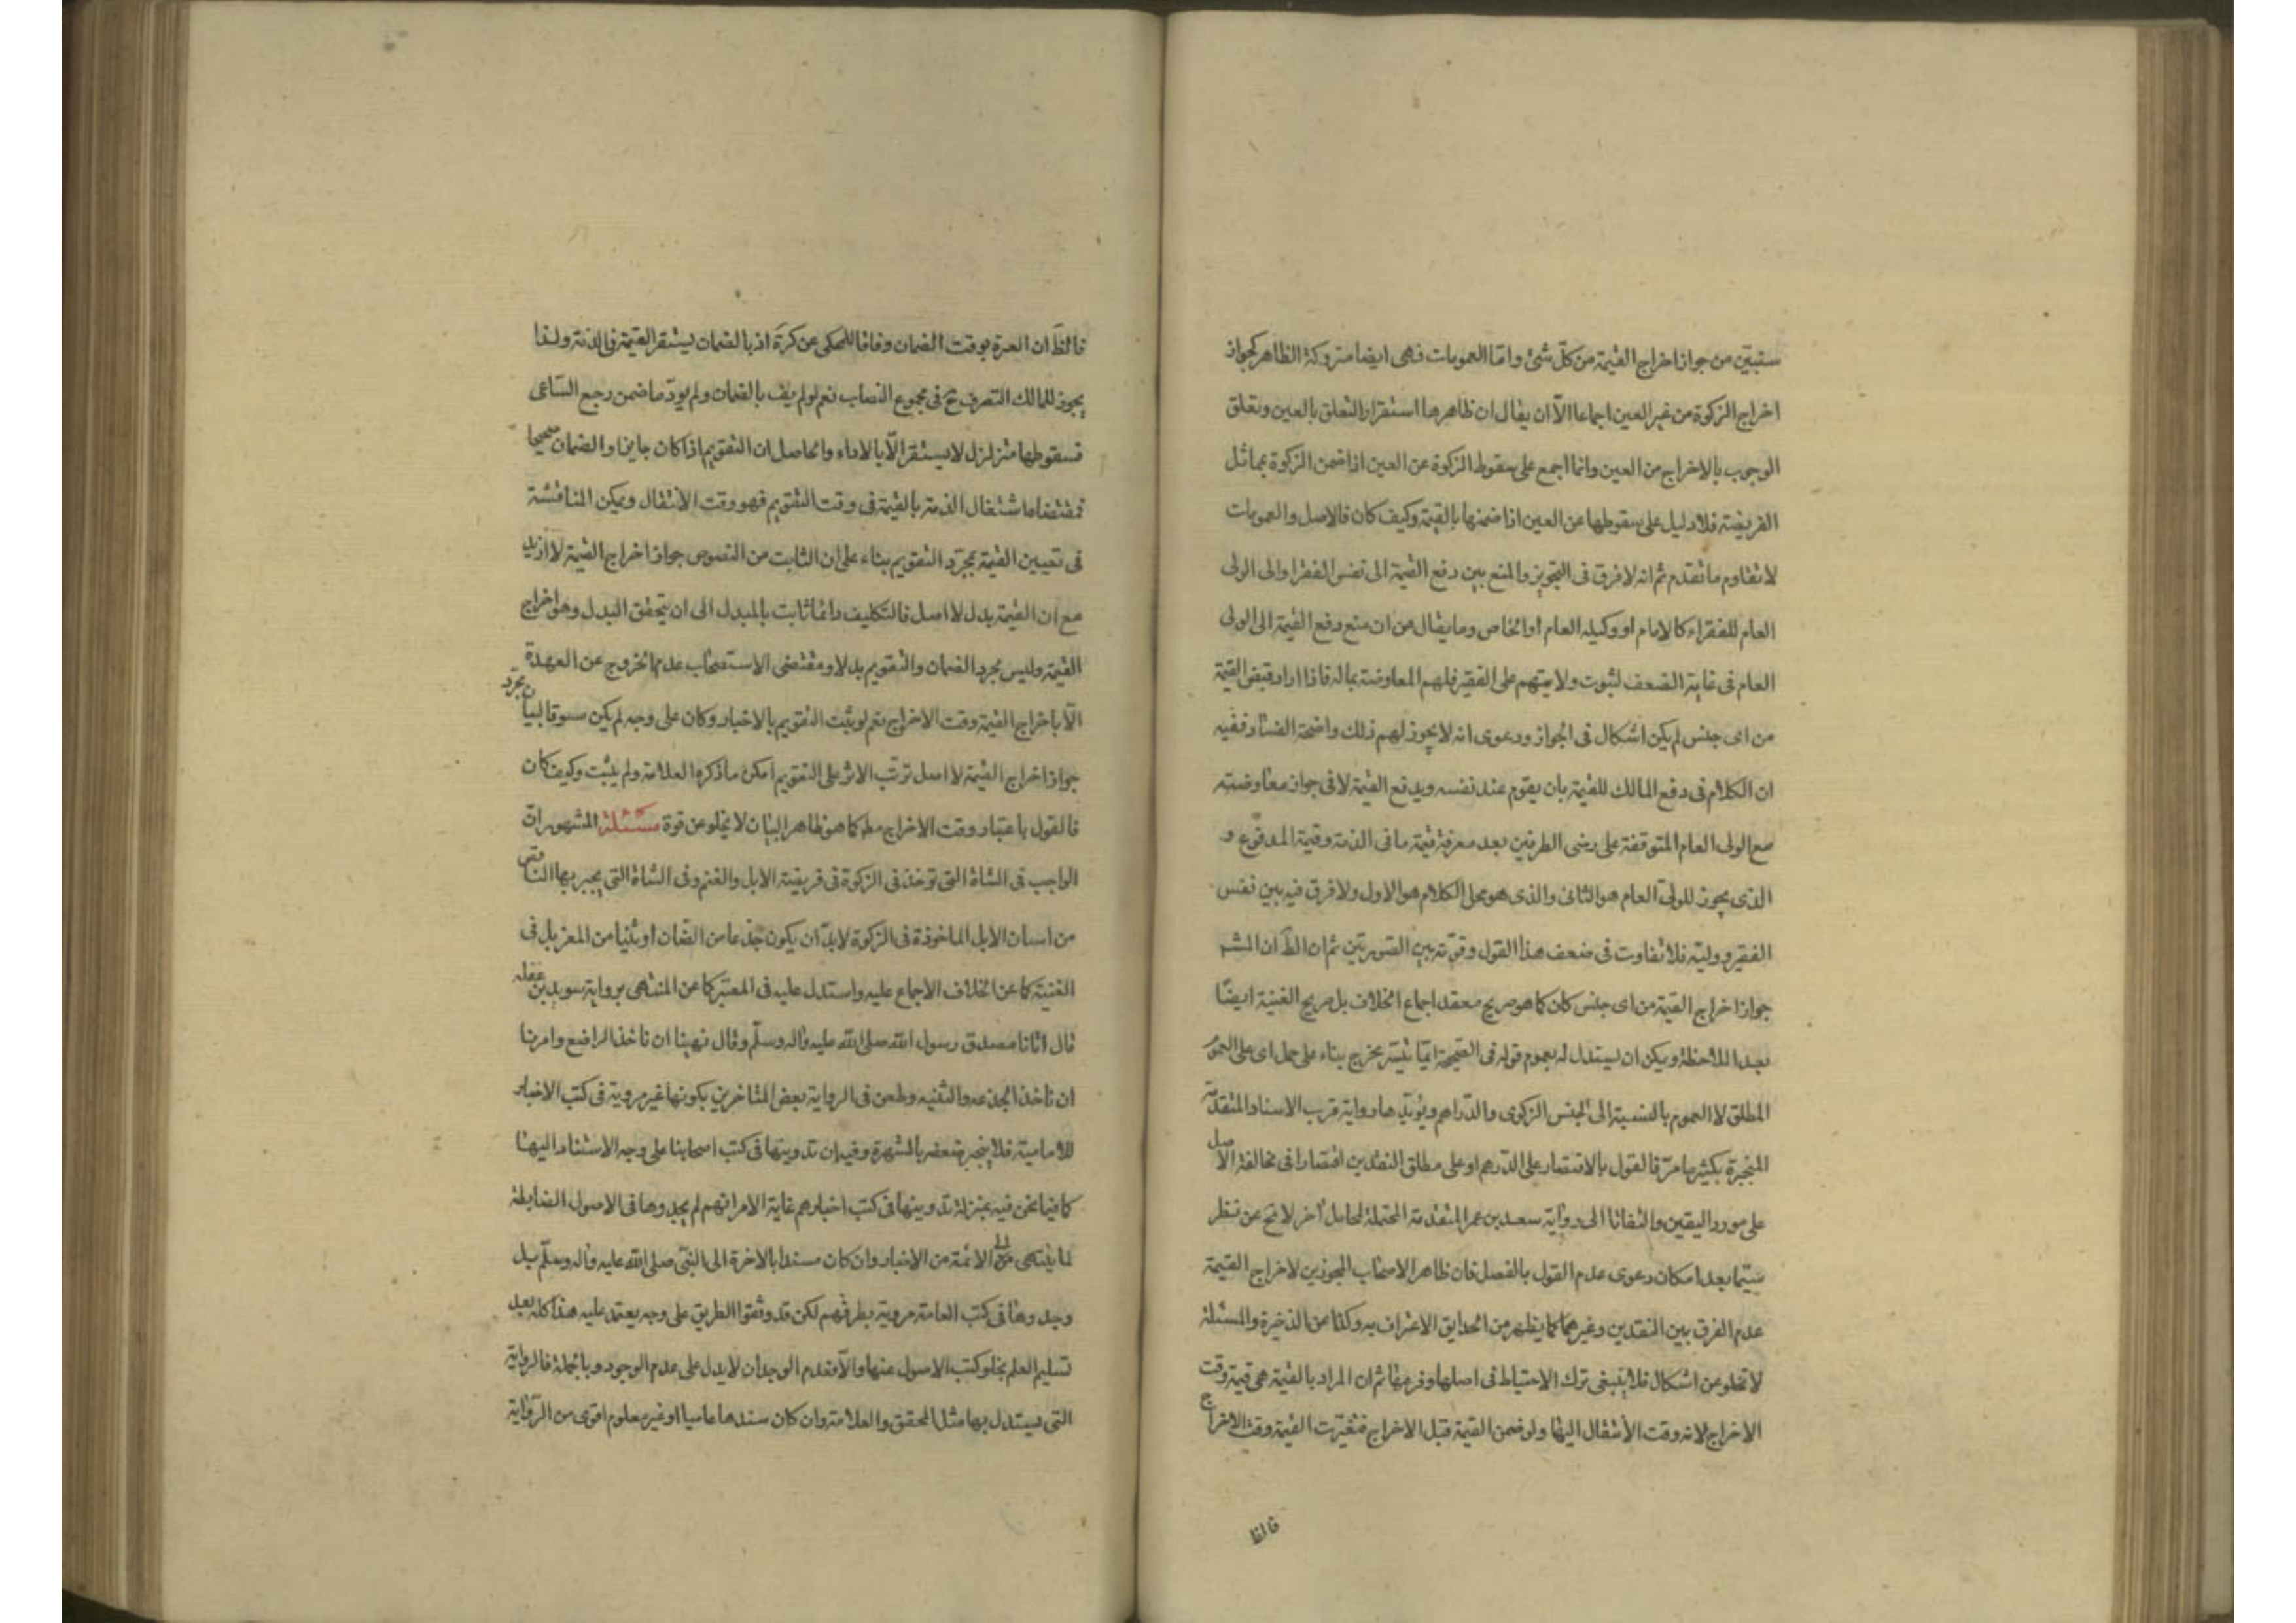 ستبين من جواز اخراج القيمة من كلّ شئ وامّا العمومات فهى ايضا متروكة الظاهر كجواز
اخراج الزكوة من غير العين اجماعا الّا ان يقال ان ظاهرها استقرار التعلق بالعين وتعلق
الوجوب بالاخراج من العين وانما اجمع على سقوط الزكوة عن العين اذا ضمن الزكوة بماثل
الفريضة فلا دليل على سقوطها عن العين اذا ضمنها بالقيمة وكيف كان فالاصل والعمومات
لا تقاوم ما تقدم ثم انه لا فرق فى التجويز والمنع بين دفع القيمة الى نفس الفقرا والى الولى
العام للفقراء كالامام او وكيله العام او الخاص وما يقال من ان منع دفع القيمة الى الولى
العام فى غاية الضعف لثبوت ولايتهم على الفقير فلهم المعاوضة بماله فاذا اراد قبض القيمة
من اى جنس لم يكن اشكال فى الجواز ودعوى انه لا يجوز لهم ذلك واضحة الفساد ففيه
ان الكلام فى دفع المالك للقيمة بان يقوم عند نفسه ويدفع القيمة لا فى جواز معاوضته
مع الولى العام المتوقفة على رضى الطرفين بعد معرفة قيمة ما فى الذمة وقيمة المدفوع و
الذى يجوز للولىّ العام هو الثانى والذى هو محل الكلام هو الاول ولا فرق فيه بين نفس
الفقير ووليّه فلا تفاوت فى ضعف هذا القول وقوّته بين الصورتين ثم ان الظّ ان المشهـ
جواز اخراج القيمة من اى جنس كان كما هو صريح معقد اجماع الخلاف بل صريح الغنية ايضًا
بعد الملاحظة ويمكن ان يستدل له بعموم قوله فى الصّحيحة ايّما تيسّر يخرج بناء على حمل اى على العموم
المطلق لا العموم بالنسبة الى الجنس الزكوى والدّراهم ويؤيّدها رواية قرب الاسناد المتقدمة
المنجبرة بكثير ما مرّ فالقول بالاقتصار على الدّرهم او على مطلق النقدين اقتصارا فى مخالفة الاصل
على مورد اليقين والتفاتا الى رواية سعد بن عمر المتقدمة المحتملة لمحامل آخر لا يخ عن نظر
سيّما بعد امكان دعوى عدم القول بالفصل فان ظاهر الاصحاب المجوزين لاخراج القيمة
عدم الفرق بين النقدين وغيرهما كما يظهر من الحدايق الاعتراف به وكذا عن الذخيرة والمسئلة
لا تخلو عن اشكال فلا ينبغى ترك الاحتياط فى اصلها وفرعها ثم ان المراد بالقيمة هى قيمة وقت
الاخراج لانه وقت الأنتقال اليها ولو ضمن القيمة قبل الاخراج فتغيّرت القيمة وقت الاخراج
فالظ
فالظّ ان العبرة بوقت الضمان وفاقا للمحكى عن كرة اذ بالضمان يستقر القيمة فى الذمة ولذا
يجوز للمالك التصرف ح فى مجموع النصاب نعم لو لم يف بالضمان ولم يودّ ما ضمن رجع السّاعى
فسقوطها متزلزل لا يستقر الّا بالاداء والحاصل ان التقويم اذا كان جايزا والضمان صحيحا
فمقتضاه اشتغال الذمة بالقيمة فى وقت التقويم فهو وقت الانتقال ويمكن المناقشة
فى تعيين القيمة بمجرّد التقويم بناء على ان الثابت من النصوص جواز اخراج القيمة لا ازيد
مع ان القيمة بدل لا اصل فالتكليف دائما ثابت بالمبدل الى ان يتحقق البدل وهو اخراج
القيمة وليس مجرد الضمان والتقويم بدلا ومقتضى الاستصحاب عدم الخروج عن العهدة
الّا باخراج القيمة وقت الاخراج نعم لو ثبت التقويم بالاخبار وكان على وجه لم يكن مسوقا لبيان مجرد
جواز اخراج القيمة لا اصل ترتّب الاثر على التقويم امكن ما ذكره العلامة ولم يثبت وكيف كان
فالقول باعتبار وقت الاخراج مط كما هو ظاهر البيان لا يخلو عن قوة مسئلة المشهور انّ
الواجب فى الشاة التى توخذ فى الزكوة فى فريضة الابل والغنم وفى الشاة التى يجبر بها الناقص
من اسنان الابل الماخوذة فى الزكوة لابدّ ان يكون جذعا من الضان او ثنيا من المعز بل فى
الغنية كما عن الخلاف الاجماع عليه واستدل عليه فى المعتبر كما عن المنتهى برواية سويد بن غفله
قال اتانا مصدق رسول الله صلى الله عليه واله وسلّم وقال نهينا ان ناخذ الراضع وامرنا
ان ناخذ الجذعه والثنيه وطعن فى الرواية بعض المتاخرين بكونها غير مروية فى كتب الاخبار
للامامية فلا ينجبر ضعفه بالشهرة وفيه ان تدوينها فى كتب اصحابنا على وجه الاستناد اليها
كما فيما نحن فيه بمنزلة تدوينها فى كتب اخبارهم غاية الامر انهم لم يجدوها فى الاصول الضابطة
لما ينتهى الى الائمة من الاخبار وان كان مسندا بالاخرة الى النّبىّ صلى الله عليه واله وسلّم بل
وجدوها فى كتب العامة مروية بطرقهم لكن قد وثقوا الطريق على وجه يعتمد عليه هذا كله بعد
تسليم العلم بخلو كتب الاصول عنها والّا فعدم الوجدان لا يدل على عدم الوجود وبالجملة فالرواية
التى يستدل بها مثل المحقق والعلامة وان كان سندها عاميا او غير معلوم اقوى من الرّواية